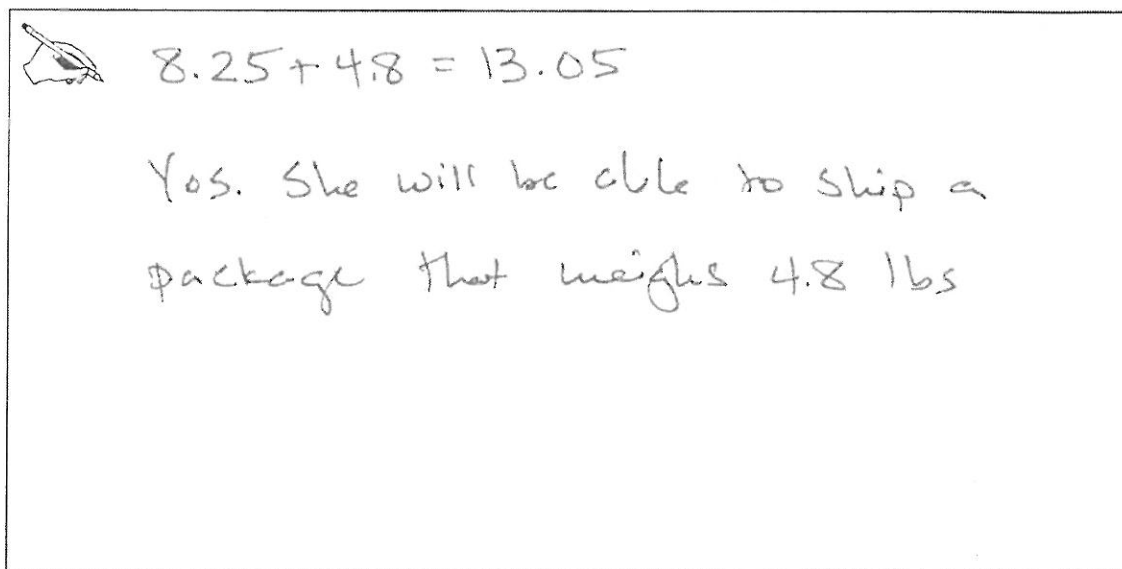 8.25 + 4.8 = 13.05
Yes. She will be able to ship a
package that weighs 4.8 lbs